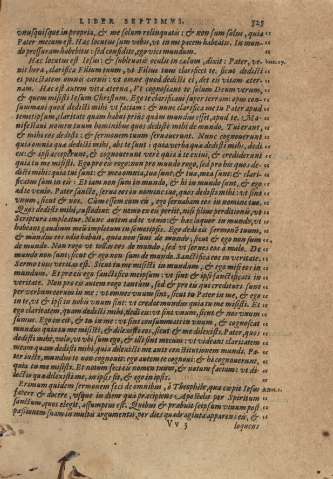 LIBER SEPTIMVS. 525
vnusquisque in propria, & me solum relinquatis: & non sum solus, quia
Pater mecum est. Hæc locutus sum vobis, vt in me pacem habeatis. In mun-
do pressuram habebitis: sed confidite, ego vici mundum.
Hæc locutus est Iesus: & subleuatis oculis in cælum, dixit: Pater, ve-
nit hora, clarifica Filium tuum, vt Filius tuus clarificet te, sicut dedisti
ei potestatem omnis carnis: vt omne quod dedisti ei, det eis vitam æter-
nam. Hæc est autem vita æterna, Vt cognoscant te solum Deum verum,
& quem misisti Iesum Christum. Ego te clarificaui super terram: opus con-
summaui quod dedisti mihi vt faciam: & nunc clarifica me tu Pater apud
temetipsum, claritate quam habui prius quàm mundus esset, apud te. Ma-
nifestaui nomen tuum hominibus quos dedisti mihi de mundo. Tui erant,
& mihi eos dedisti: & sermonem tuum seruauerunt. Nunc cognouerunt
quia omnia quæ dedisti mihi, abs te sunt: quia verba quæ dedisti mihi, dedi
eis: & ipsi acceperunt, & cognouerunt verè quia à te exiui, & crediderunt
quia tu me misisti. Ego pro eis rogo: non pro mundo rogo, sed pro his quos de-
disti mihi: quia tui sunt: & mea omnia, tua sunt, & tua, mea sunt: & clari-
ficatus sum in eis: Et iam non sum in mundo, & hi in mundo sunt, & ego
ad te venio. Pater sancte, serua eos in nomine tuo, quos dedisti mihi: vt sint
vnum, sicut & nos. Cùm essem cum eis, ego seruabam eos in nomine tuo.
Quos dedisti mihi, custodiui: & nemo ex eis periit, nisi filius perditionis, vt
Scriptura impleatur. Nunc autem ad te venio: & hæc loquor in mundo, vt
habeant gaudium meum impletum in semetipsis. Ego dedi eis sermonem tuum,
& mundus eos odio habuit, quia non sunt de mundo, sicut & ego non sum
de mundo. Non rogo vt tollas eos de mundo, sed vt serues eos à malo. De
mundo non sunt: sicut & ego non sum de mundo. Sanctifica eos in veritate.
Sermo tuus veritas est. Sicut tu me misisti in mundum, & ego misi eos in
mundum. Et pro eis ego sanctifico meipsum: vt sint & ipsi sanctificati in
veritate. Non pro eis autem rogo tantùm, sed & pro eis qui credituri sunt
per verbum eorum in me: vt omnes vnum sint, sicut tu Pater in me, & ego
in te, vt & ipsi in nobis vnum sint: vt credat mundus quia tu me misisti. Et
ego claritatem, quam dedisti mihi, dedi eis: vt sint vnum, sicut & nos vnum
sumus. Ego in eis, & tu in me: vt sint consummati in vnum, & cognoscat
mundus quia tu me misisti, & dilexisti eos, sicut & me dilexisti. Pater, quos
dedisti mihi, volo, vt vbi sum ego, & illi sint mecum: vt videant claritatem
meam quam dedisti mihi, quia dilexisti me ante constitutionem mundi. Pa-
ter iuste, mundus te non cognouit: ego autem te cognoui: & hi cognouerunt,
quia tu me misisti. Et notum feci eis nomen tuum, & notum faciam: vt di-
lectio qua dilexisti me, in ipsis sit, & ego in ipsis.
Primum quidem sermonem feci de omnibus, ô Theophile, quæ cœpit Iesus
facere & docere, vsque in diem qua præcipiens Apostolis per Spiritum
sanctum, quos elegit, assumptus est. Quibus & præbuit seipsum viuum post
passionem suam in multis argumentis, per dies quadraginta apparens eis, &
Vv 3 loquens